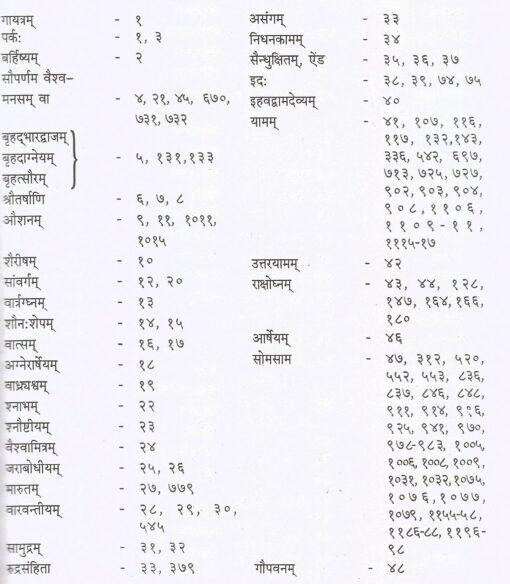 गायत्रम् - १
पर्कः - १, ३
बर्हिष्यम् - २
सौपर्णम वैश्व–
मनसम् वा - ४, २१, ४५, ६७०,
७३१, ७३२
बृहद्भारद्वाजम्
बृहदाग्नेयम् - ५, १३१,१३३
बृहत्सौरम्
श्रौतर्षाणि - ६, ७, ८
औशनम् - ९, ११, १०११,
१०१५
शैरीषम् - १०
सांवर्गम् - १२, २०
वार्त्रग्घ्नम् - १३
शौनःशेपम् - १४, १५
वात्सम् - १६, १७
अग्नेरार्षेयम् - १८
वाध्र्यश्वम् - १९
श्नाभम् - २२
श्नौष्टीयम् - २३
वैश्वामित्रम् - २४
जराबोधीयम् - २५, २६
मारुतम् - २७, ७७९
वारवन्तीयम् - २८, २९, ३०,
५४५
सामुद्रम् - ३१, ३२
रुद्रसंहिता - ३३, ३७९
असंगम् - ३३
निधनकामम् - ३४
सैन्धुक्षितम्, ऐंड - ३५, ३६, ३७
इदः - ३८, ३९, ७४, ७५
इहवद्वामदेव्यम् - ४०
यामम् - ४१, १०७, ११६,
११७, १३२,१४३,
३३६, ५४२, ६९७,
७१३, ७२५, ७२७,
९०२, ९०३, ९०४,
९०८, ११०६,
११०९-११,
१११५-१७
उत्तरयामम् - ४२
राक्षोघ्नम् - ४३, ४४, १२८,
१४७, १६४,१६६,
१८०
आर्षेयम् - ४६
सोमसाम - ४७, ३१२, ५२०,
५५२, ५५३, ८३६,
८३७, ८४६, ८४८,
९११, ९१४, ९१६,
९२५, ९४१, ९७०,
९७८-९८३, १००५,
१००६, १००८, १००९,
१०३१, १०३२,१०७५,
१०७६,१०७७,
१०७९, ११५५-५८,
११८६-८८, ११९६-
९८
गौपवनम् - ४८